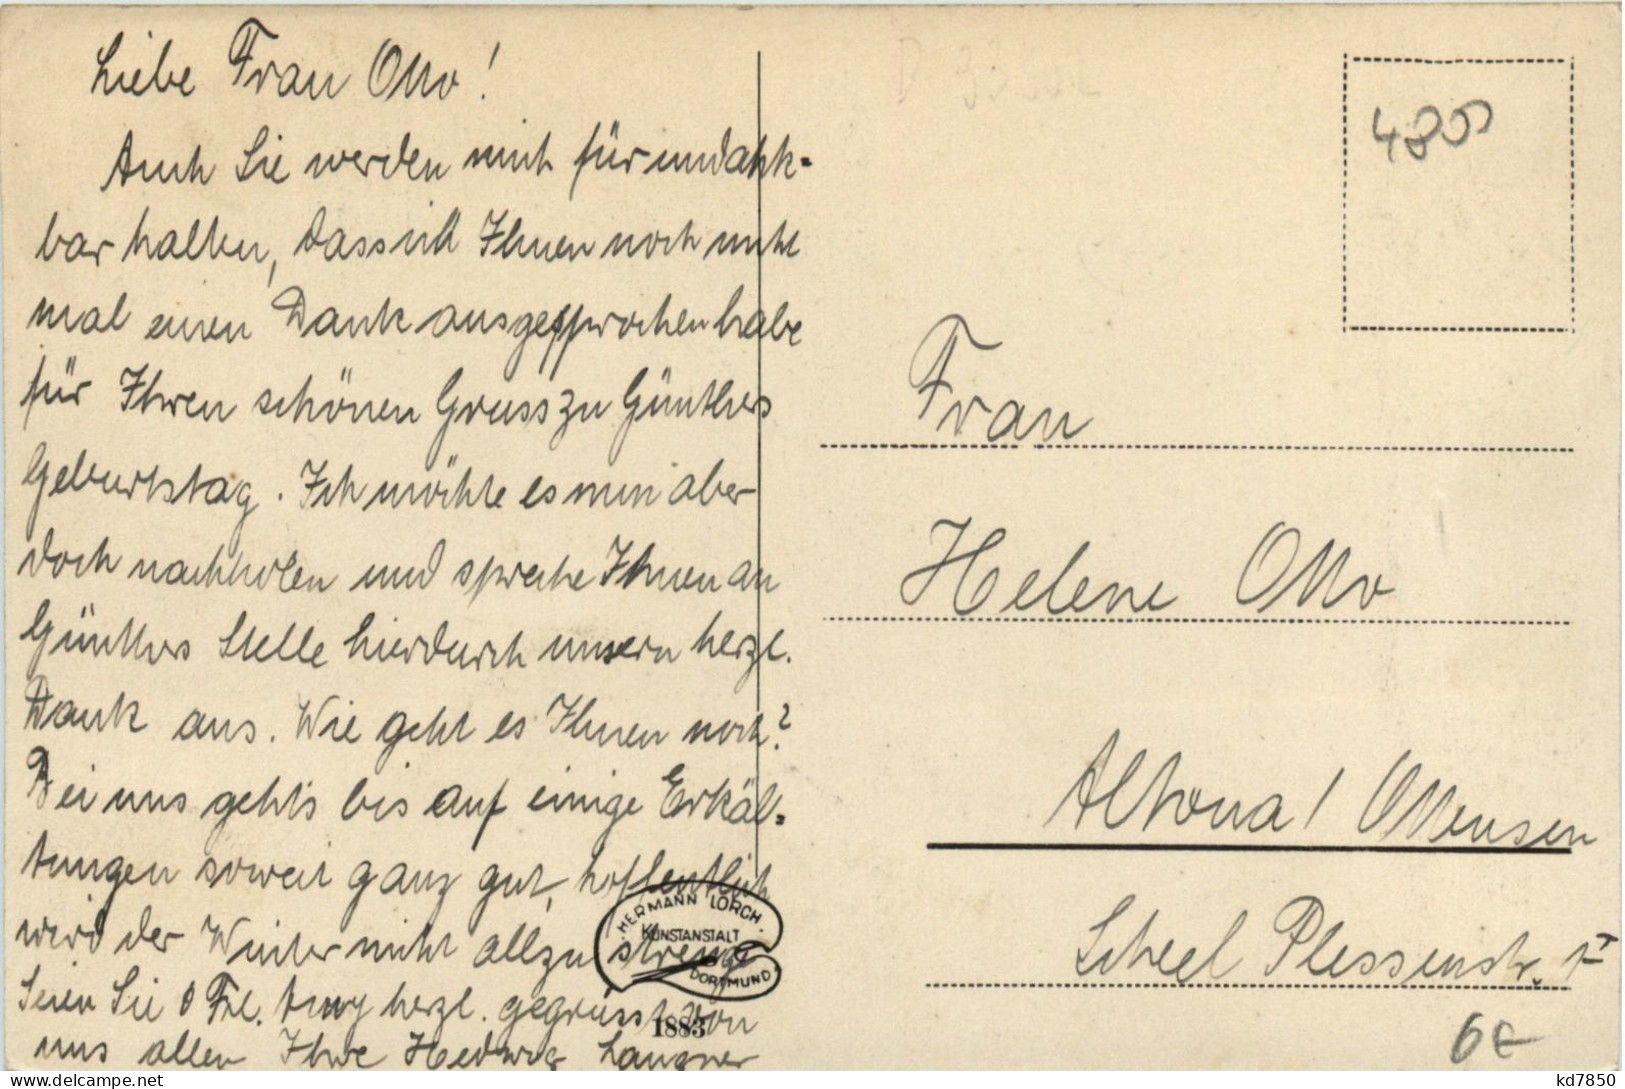 Liebe Frau Otto!
Auch Sie werden mich für undank-
bar halten, dass ich Ihnen noch nicht
mal einen Dank ausgesprochen habe
für Ihren schönen Gruss zu Günthers
Geburtstag. Ich möchte es nun aber
doch nachholen und spreche Ihnen an
Günthers Stelle hierdurch unsern herzl.
Dank aus. Wie geht es Ihnen noch?
Bei uns geht's bis auf einige Erkäl-
tungen soweit ganz gut, hoffentlich
wird der Winter nicht allzu streng
Seien Sie Frl. herzl. gegrüsst von
uns allen Ihre Hedwig Langner
HERMANN LORCH
KUNSTANSTALT
DORTMUND
1883
4800
Frau
Helene Otto
Altona / Ottensen
Scheel Plessenstr.
6€
kd7850